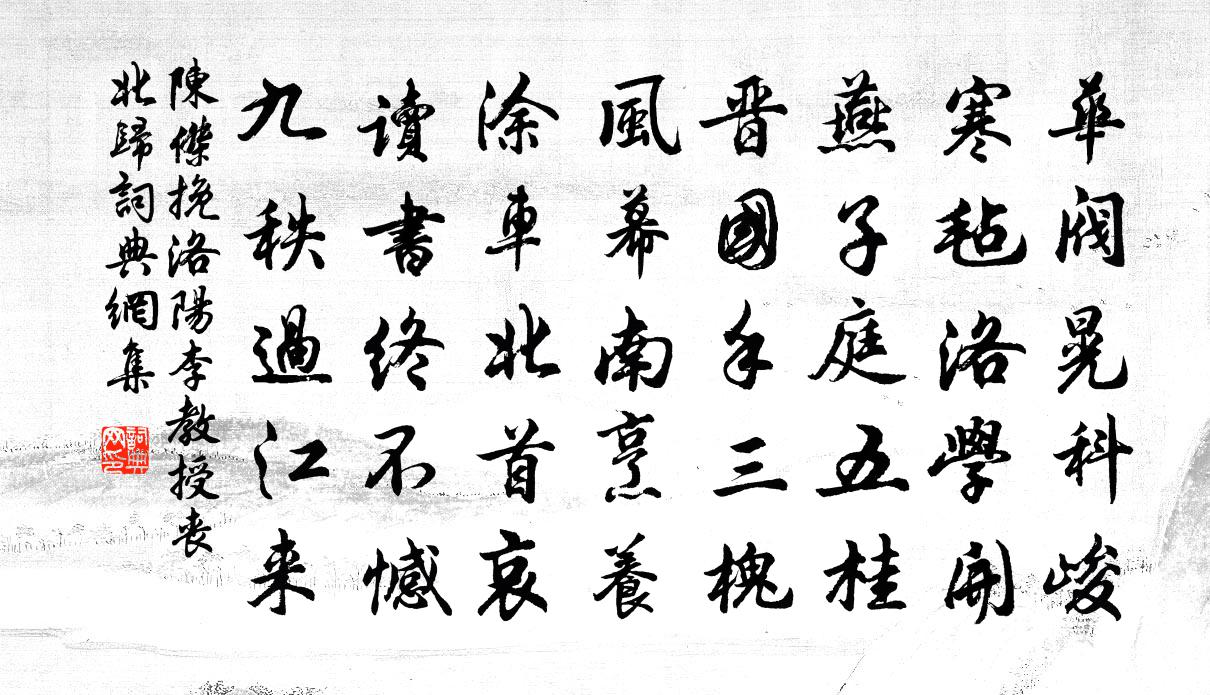 華閥晃科峻
寒毡洛學開
燕子庭五桂
晋國手三槐
風幕南烹養
涂車北首哀
讀書終不憾
九秩過江来
陳傑挽洛陽李教授喪
北歸詞典網集
詞典网印